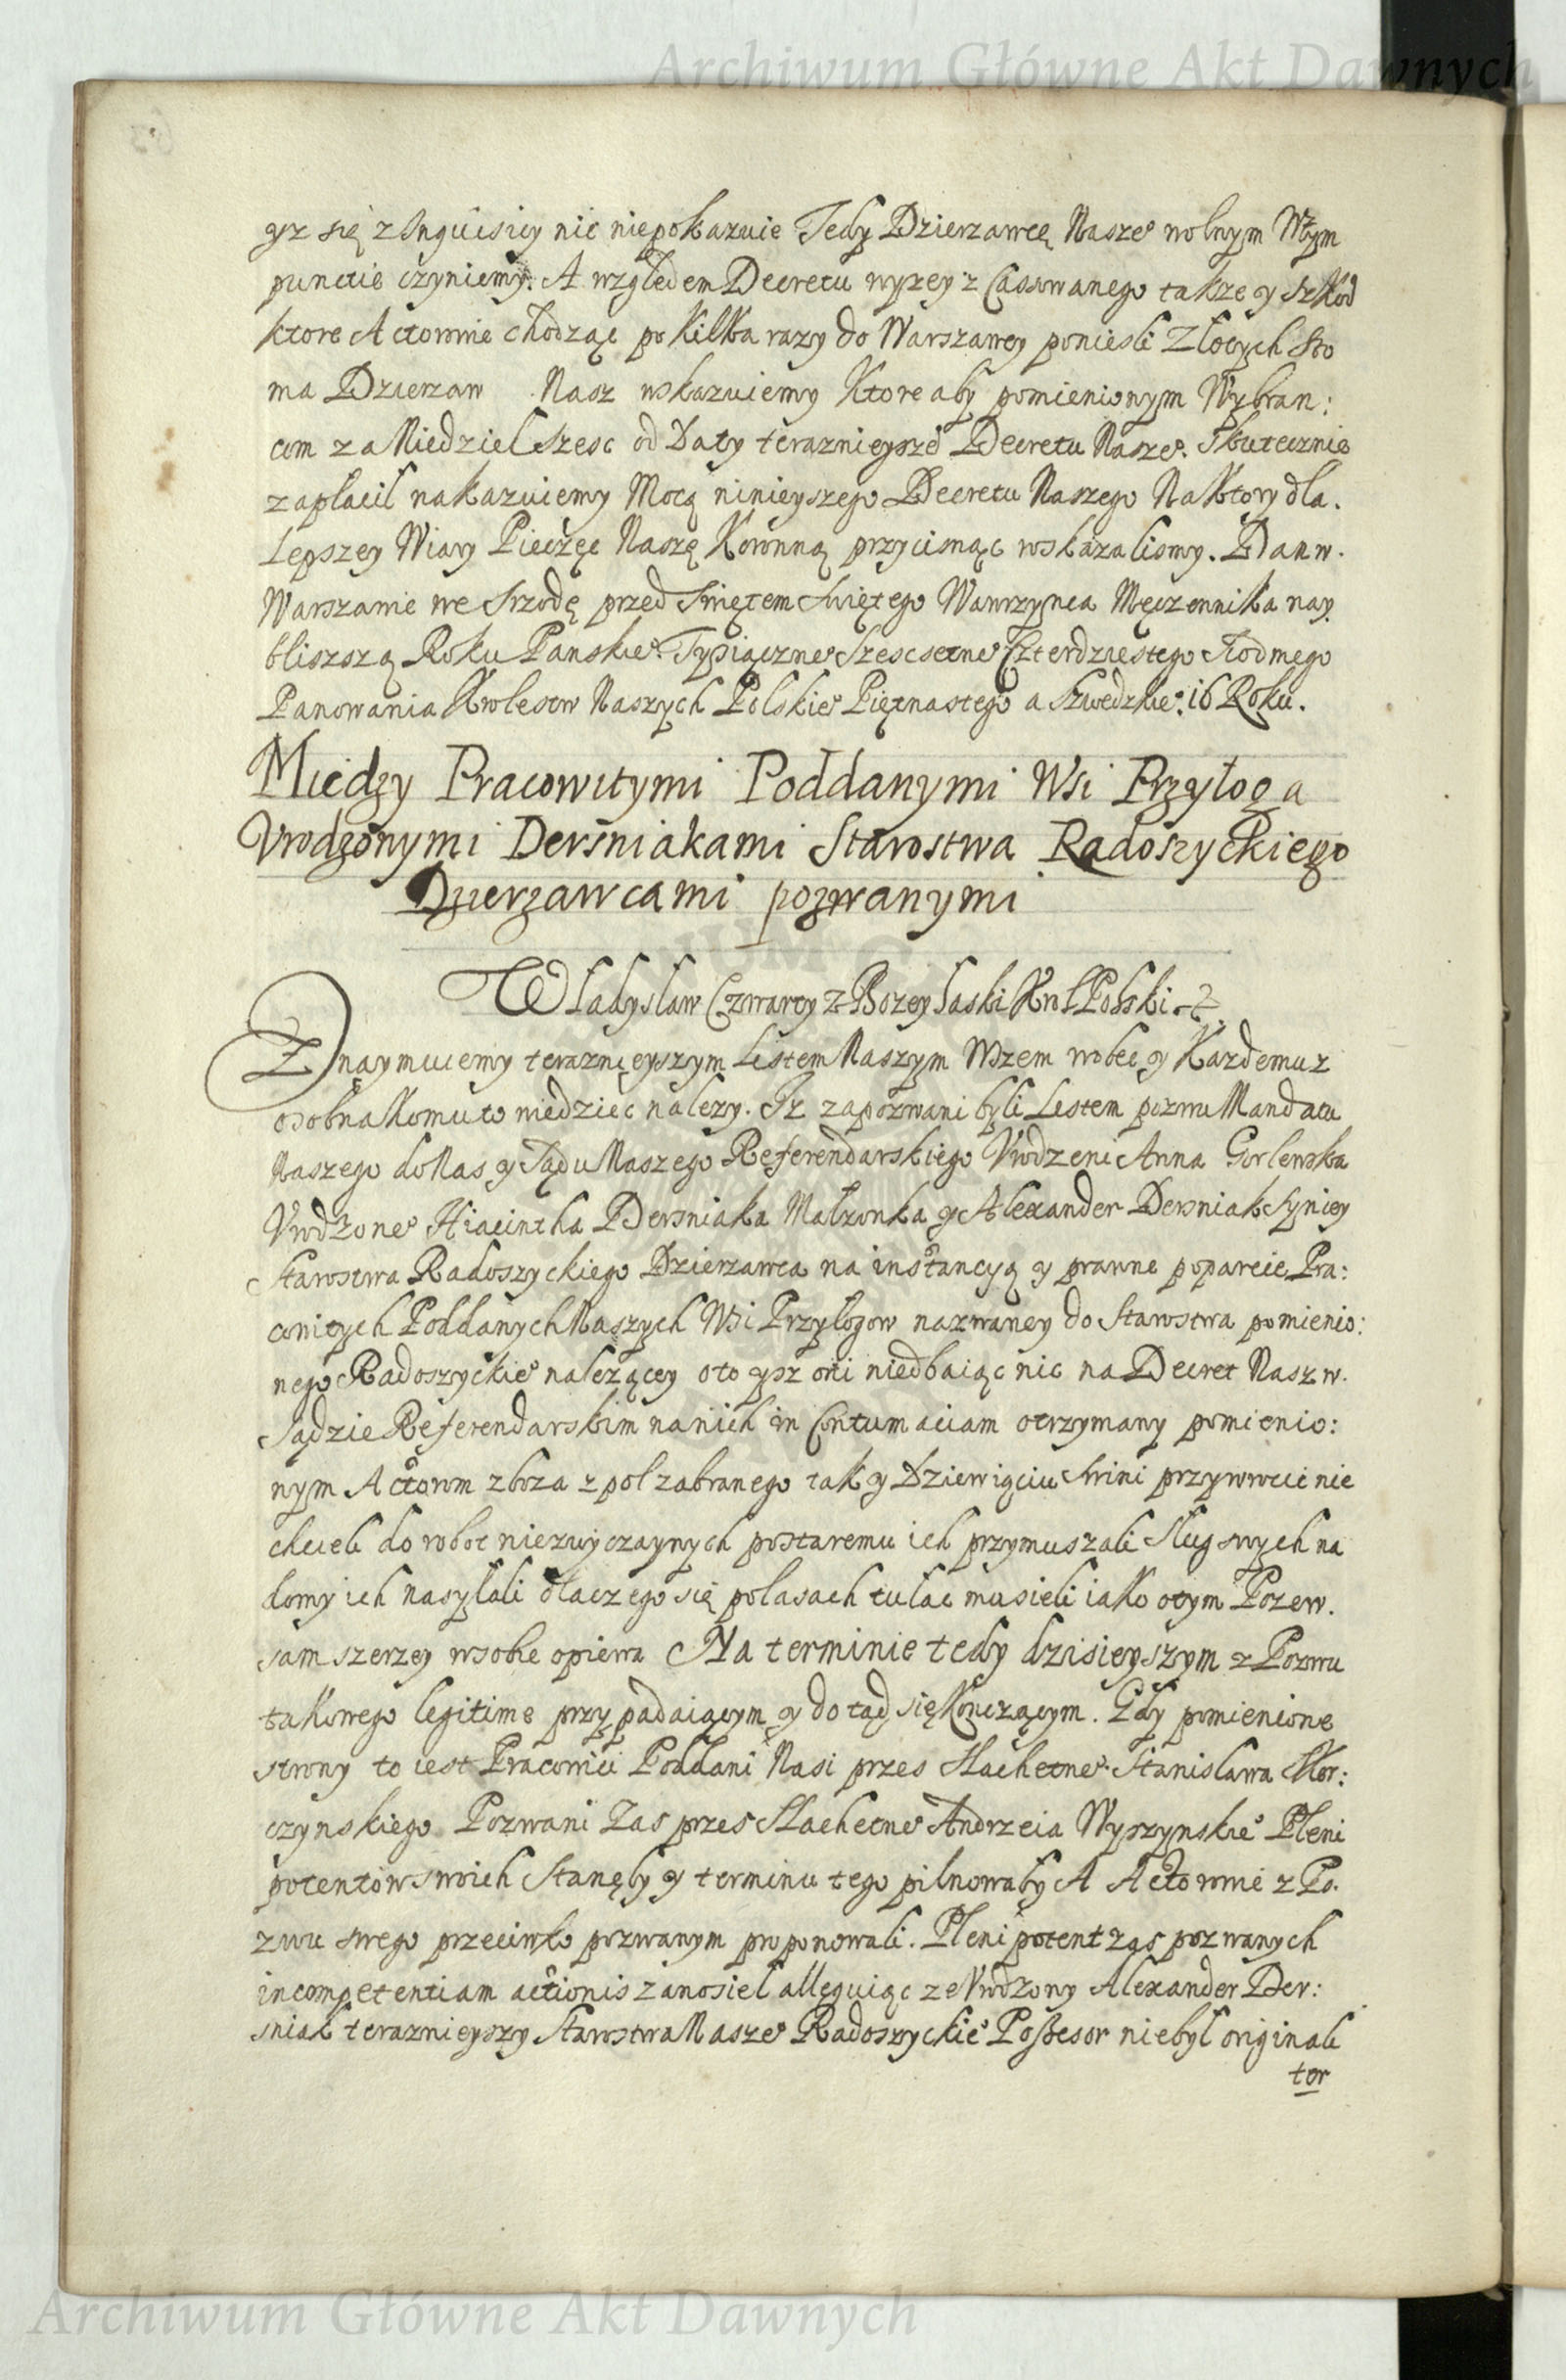 Archiwum Główne Akt Dawnych
yz się z Inquisicy nic niepokazuie Tedy Dzierzawcę Nasze° wolnym Wtym
punctie czyniemy. A względem Decretu wyzey z Cassowanego takze y Szkod
ktore Actorowie chodząc po kilka razy do Warszawy poniesli Złotych Sto
ma Dzierzaw Nasz wskazuiemy Ktore aby pomienionym Wybran:
com za Niedziel Szesc od Daty teraznieysze° Decretu Nasze°. Skutecznie
zapłacił nakazuiemy Mocą ninieyszego Decretu Naszego Na Ktory dla.
Lepszey Wiary Pieczęc Naszę Koronną przycisnąc wskazalismy. Dan w.
Warszawie we Srzodę przed Swiętem Swiętego Wawrzynca Męczennika nay
bliszszą Roku Panskie°. Tysiączne° Szescsetne° Czterdziestego Siodmego
Panowania Krolestw Naszych Polskie° Piętnastego a Szwedzkie°. 16 Roku.
Między Pracowitymi Poddanymi Wsi Przyłog a
Vrodzonymi Dersniakami Starostwa Radoszyckiego
Dzierzawcami pozwanymi
Władysław Czwarty z Bozey Łaski Krol Polski. &
Znaymuiemy teraznieyszym Listem Naszym Wszem wobec y Kazdemu z
osobna Komu to wiedziec nalezy. Iz zapozwani byli Listem pozwu Mandatu
Naszego do Nas y Sądu Naszego Referendarskiego Vrodzeni Anna Gorlewska
Vrodzone° Hiacintha Dersniaka Małzonka y Alexander Dersniak Syn iey
Starostwa Radoszyckiego Dzierzawca na instancyą y prawne poparcie Pra:
cowitych Poddanych Naszych Wsi Przyłogow nazwaney do Starostwa pomienio:
nego Radoszyckie° nalezącey oto ysz oni niedbaiąc nic na Decret Nasz w.
Sądzie Referendarskim na nich in Contumaciam otrzymany pomienio:
nym Actorom zboza z pol zabranego tak y Dziewięciu Swini przywrocic nie
chcieli do robot niezwyczaynych postaremu ich przymuszali Sług swych na
domy ich nasyłali dlaczego się po lasach tułac musieli iako otym Pozew.
sam szerzey wsobie opiewa Na terminie tedy dzisieyszym z Pozwu
takowego legitime przypadaiącym y do tąd się Konczącym. Gdy pomienione
strony to iest Pracowici Poddani Nasi przes Slachetne°. Stanisława Skor:
czynskiego Pozwani Zas przes Slachetne° Andrzeia Wyszynskie° Pleni
potentow swoich Stanęły y terminu tego pilnowały A Actorowie z Po.
zwu swego przeciwko pozwanym proponowali. Plenipotent zas pozwanych
incompetentiam actionis zanosieł alleguiąc ze Vrodzony Alexander Der:
sniak teraznieyszy Starostwa Nasze° Radoszyckie° Possesor niebył originali
ter
Archiwum Główne Akt Dawnych